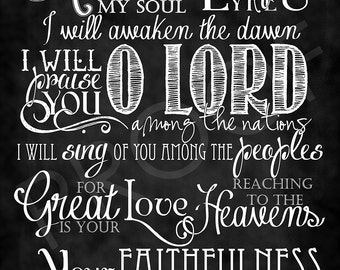 MY SOUL LYRE
I will awaken the dawn
I WILL praise YOU O LORD
among the nations
I WILL sing OF YOU AMONG THE peoples
FOR Great IS YOUR Love REACHING TO THE Heavens
Your FAITHFULNESS